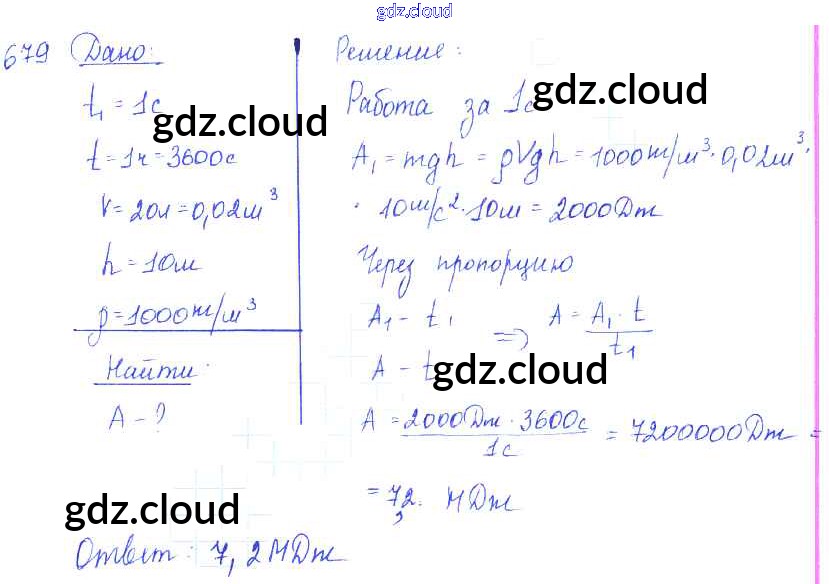 gdz.cloud
679 Дано:
t₁ = 1с
gdz.cloud
t = 1ч = 3600с
V = 20л = 0,02м³
h = 10м
ρ = 1000кг/м³
Найти:
A - ?
Решение:
Работа за 1с
gdz.cloud
A₁ = mgh = ρVgh = 1000кг/м³ · 0,02м³ ·
· 10м/с² · 10м = 2000Дж
Через пропорцию
A₁ - t₁
A - t
=> A = A₁ · t / t₁
gdz.cloud
A = 2000Дж · 3600с / 1с = 7200000Дж =
= 7,2 МДж
gdz.cloud
Ответ: 7,2МДж